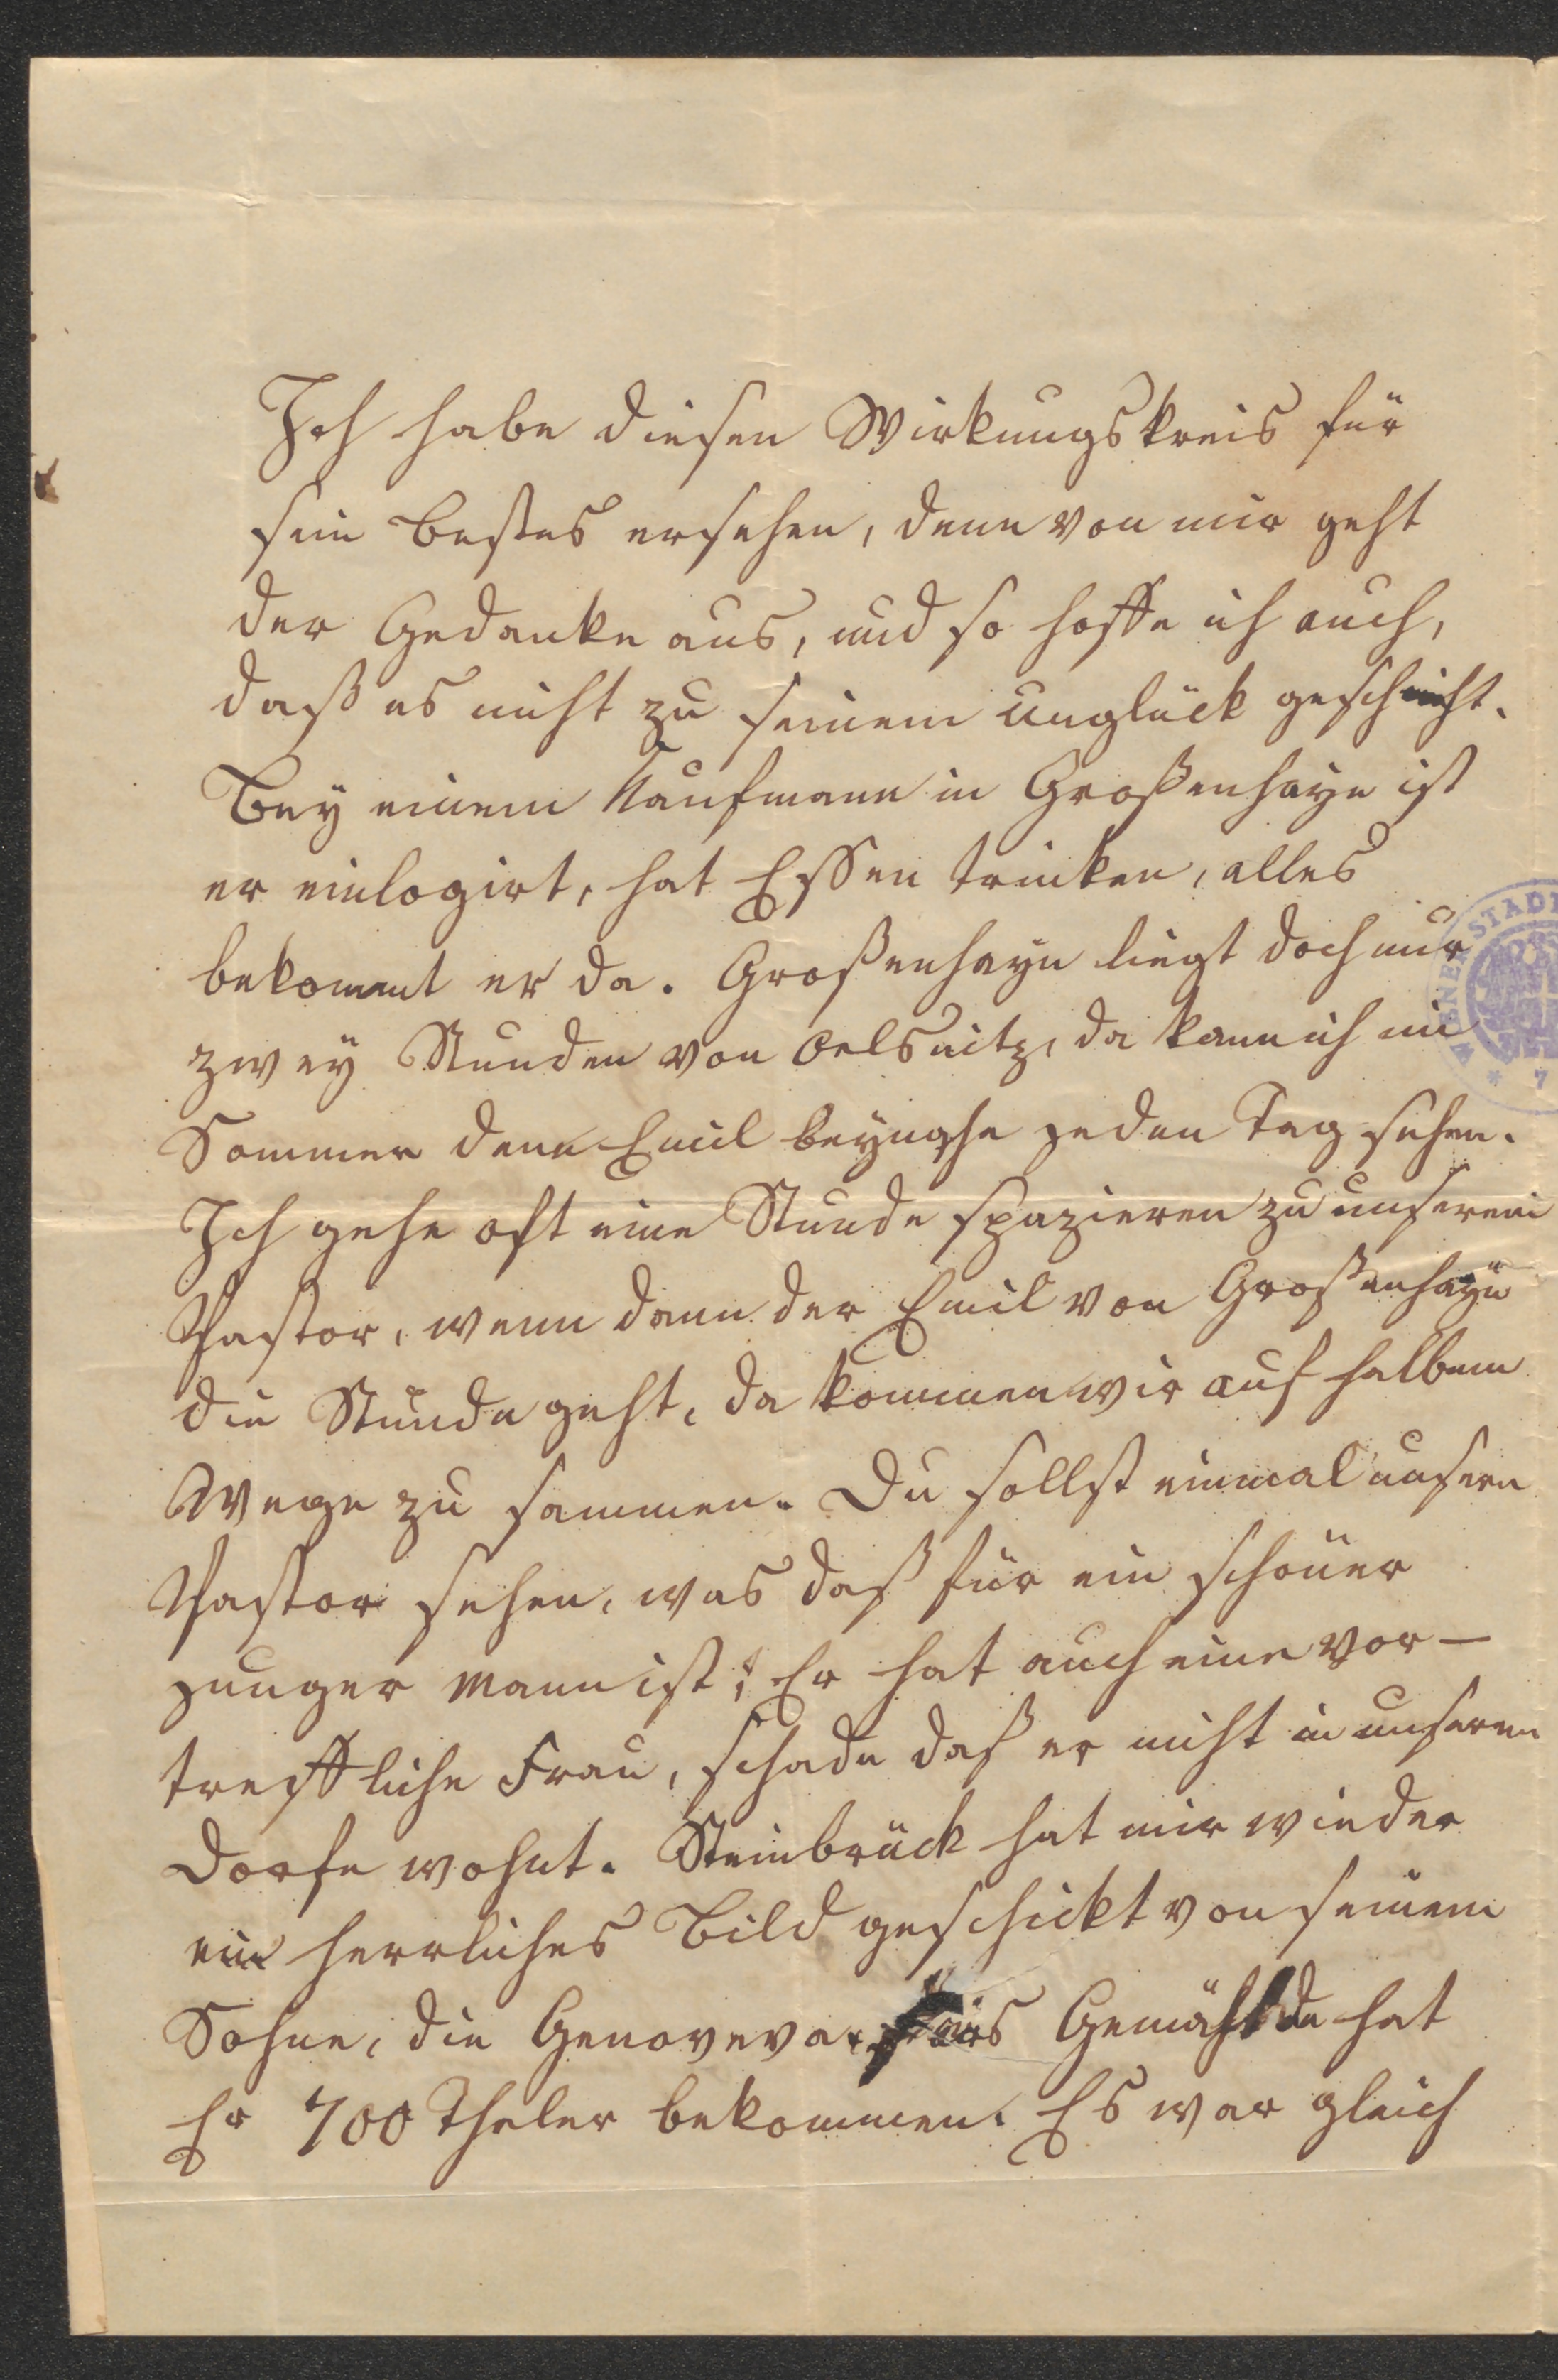 Ich habe diesen Wirkungskreis für
sein Bestes ersehen, denn von mir geht
der Gedanke aus, und so hoffe ich auch,
daß es nicht zu seinem Unglück geschieht.
Bey einem Kaufmann in Großenhayn ist
er einlogirt, hat Essen trinken, alles
bekommt er da. Großenhayn liegt doch nur
zwey Stunden von Oelsnitz, da kann ich im
Sommer denn Emil beynahe jeden Tag sehen.
Ich gehe oft eine Stunde spazieren zu unserem
Pastor, wenn dann der Emil von Großenhayn
die Stunde geht, da kommen wir auf halbem
Wege zu sammen. Du sollst einmal unsern
Pastor sehen, was daß für ein schöner
junger Mann ist; Er hat auch eine vor-
treffliche Frau, schade daß er nicht in unserem
Dorfe wohnt. Steinbrück hat mir wieder
ein herrliches Bild geschickt von seinem
Sohne, die Genoveva, Gemählde hat
Er 700 Thaler bekommen. Es war gleich
STADT
* 7